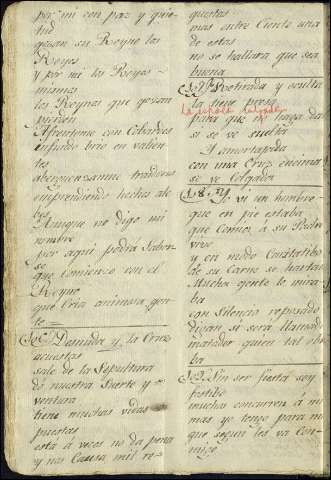 por mi con paz y quie-
tud
gozan su Reyno los
Reyes
y por mi los Reyes
mismos
los Reynos que gozan
pierden
Afrentome con Cobardes
infundo brio en valien
tes
averguenzanme traidores
emprendiendo hechos ale
bes
Aunque no digo mi
nombre
por aqui podrá saber
se
que comienzo con el
Reyno
que Cria animosa gen
te
Desnuda y la Cruz
acuestas
sale de la Sepultura
dá nuestra suerte y
ventura
tiene muchas vidas
puestas
está á veces no da pena
y nos Causa mil re-
puestas
mas entre Ciento una
de estas
no se hallará que sea
buena
Retirada y oculta
la tiene presa
para que no haga da
si se ve suelta
Amortajada
con una Cruz encima
se ve Colgada
Yo vi un hombre
que en pie estaba
que Comió á su Padre
vivo
y en modo
de su Carne se hartaba
Mucha gente lo mira
ba
con Silencio reposado
digan si será llamado
matador quien tal obra
ba
Sin ser fiesta soy
festibo
muchos concurren á mi
mas yo tengo para mi
que según les va Con-
migo